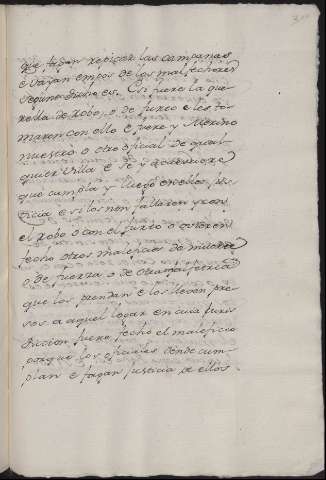 que fagan repicar las campanas
e vayan empos de los malfechores
segund dicho es. E si fuere la que-
rella de Robo, o de furto e les to-
maren con ello e fuere y Merino
nuestro o otro oficial de qual-
quier Villa e se y
que cumpla y luego en ellos jus-
ticia e si los non fallaron con
el robo o con el furto o ovieren
fecho otros maleficios de muerte
o de fuerza o de otra malfetria
que los prendan e los lleven pre-
sos a aquel logar en cuia juris-
diccion fuere fecho el maleficio
porque los oficiales dende cum-
plan e fagan justicia de ellos